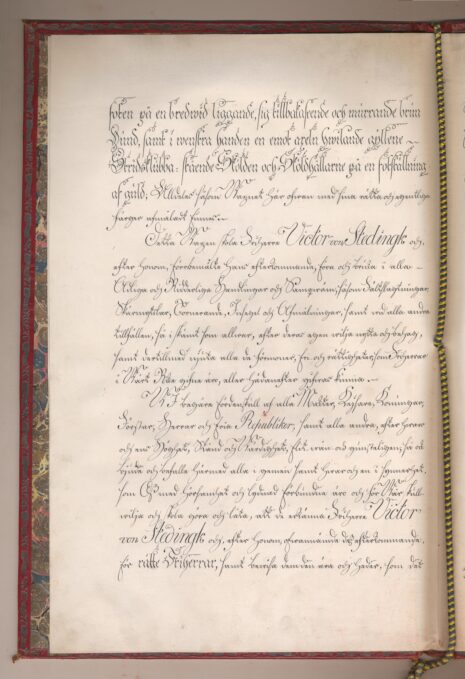 foten på en bredwid liggande, sig tillbakaseende och murrande brun
Hund, samt i wenstra handen en emot axeln hwilande gyllene
Stridsklubba: stående Skölden och Sköldhållarne på en fotställning
af guld; Alldeles såsom Wapnet här ofwan med sina rätta och egentliga
färgor afmåladt finnes.
Detta Wapen skola Friherre Victor von Stedingk och,
efter honom, förebemälte hans efterkommande, föra och bruka i alla
Adliga och Ridderliga Handlingar och Sammanträden, såsom Fältslagtningar,
Skärmytslar, Torneringar, Insegel och Afmålningar, samt wid alla andra
tillfällen, så i skämt som allwar, efter deras egen wilja nytta och behag,
samt dertillmed njuta alla de förmoner, fri och rättigheter, som Friherrar
i Wårt Rike gifne äro, eller hädanefter gifwas kunna.
Wi begäre fördenskull af alla Magter, Kejsare, Konungar,
Förstar, Herrar och fria Republiker, samt alla andra, efter hwars
och ens Höghet, Stånd och Wärdighet, flit, wän- och gunsteligen, så ock
bjude och befalle härmed alla i gemen samt hwar och en i synnerhet,
som Oss med hörsamhet och lydnad förbundne äro och för Wår skull
wilja och skola göra och låta, att de erkänna Friherre Victor
von Stedingk och, efter honom, ofwannämnde dess efterkommande,
för rätte Friherrar, samt bewisa dem den ära och heder, som det